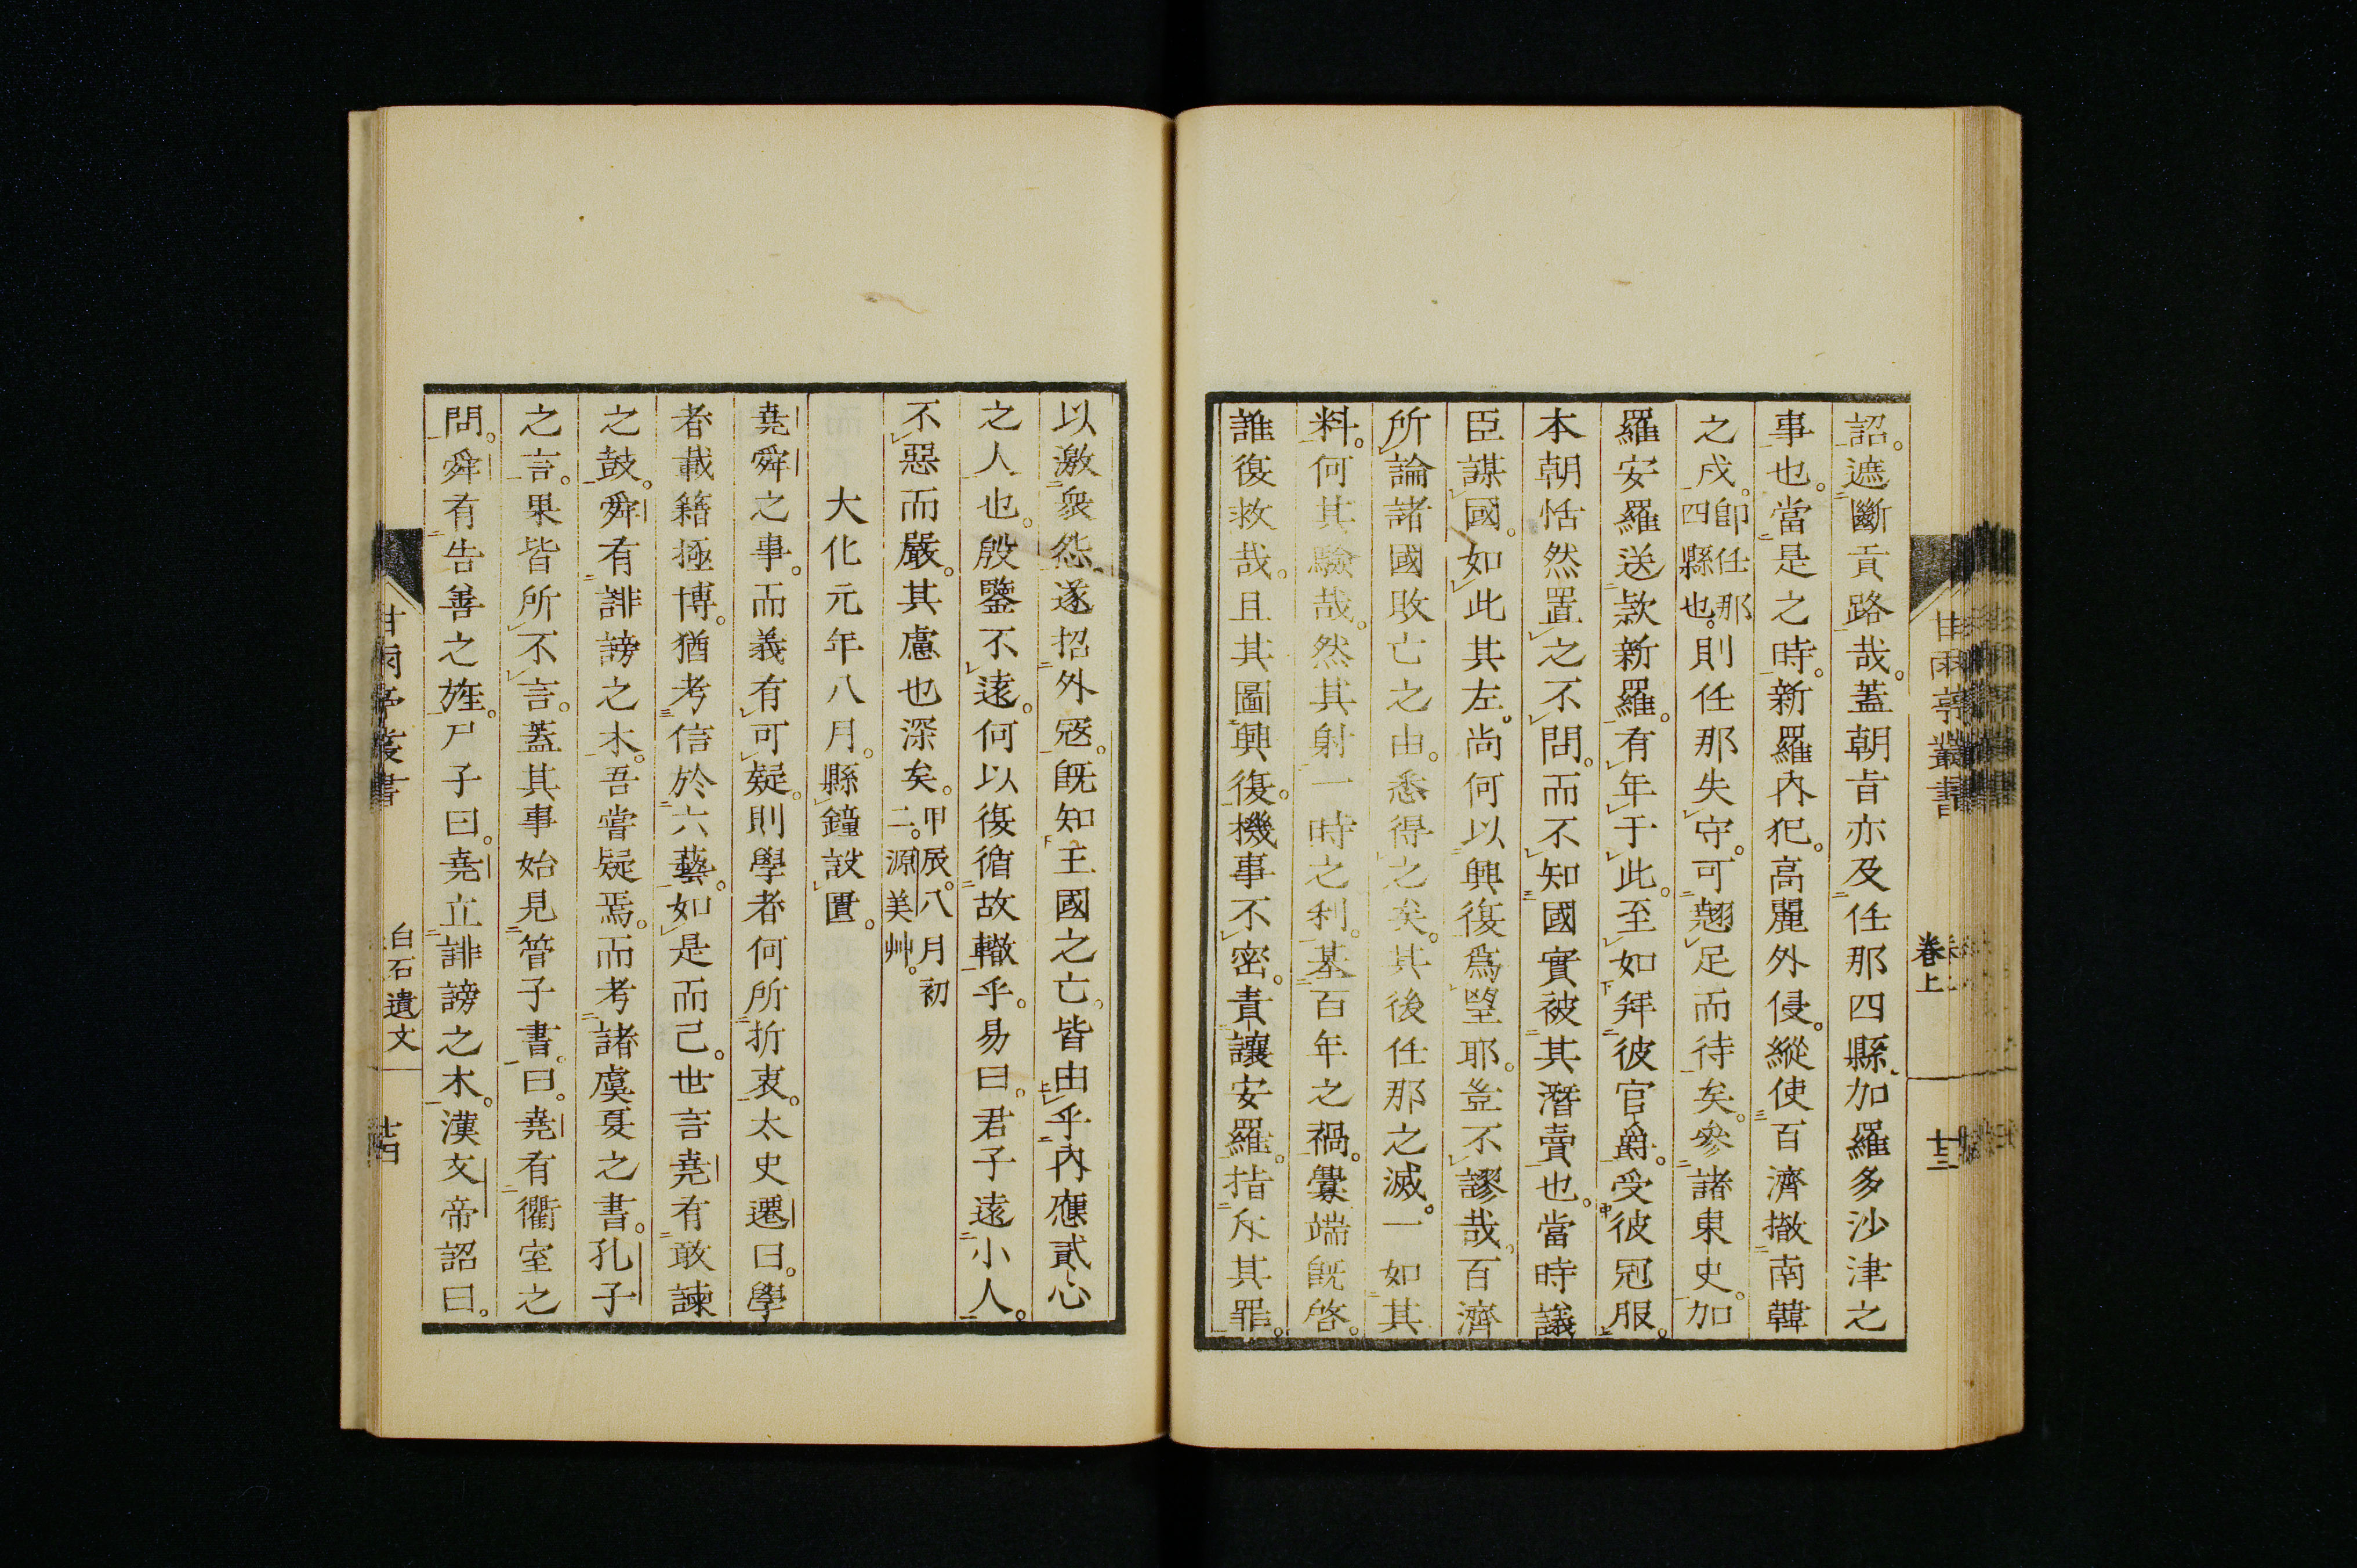 詔。遮斷貢路哉。蓋朝旨亦及任那四縣、加羅多沙津之
事也。當是之時。新羅內犯。高麗外侵。縱使百濟撤南韓
之戍。卽任那四縣也。則任那失守。可翹足而待矣。參諸東史。加
羅安羅送款新羅。有年于此。至如拜彼官爵。受彼冠服。
本朝恬然置之不問。而不知國實被其潛賣也。當時議
臣謀國。如此其左。尚何以興復爲望耶。豈不謬哉。百濟
所論諸國敗亡之由。悉得之矣。其後任那之滅。一如其
料。何其驗哉。然其射一時之利。基百年之禍。釁端旣啓。
誰復救哉。且其圖興復。機事不密。責讓安羅。指斥其罪。
甘雨亭叢書
卷上
廿三
以激衆怨。遂招外寇。旣知王國之亡。皆由乎內應貳心
之人也。殷鑒不遠。何以復循故轍乎。易曰。君子遠小人。
不惡而嚴。其慮也深矣。甲辰。八月初二。源美艸。
大化元年八月。縣鐘設匱。
堯舜之事。而義有可疑。則學者何所折衷。太史遷曰。學
者載籍極博。猶考信於六藝。如是而已。世言堯有敢諫
之鼓。舜有誹謗之木。吾嘗疑焉。而考諸虞夏之書。孔子
之言。果皆所不言。蓋其事始見管子書。曰。堯有衢室之
問。舜有告善之旌。尸子曰。堯立誹謗之木。漢文帝詔曰。
甘雨亭叢書
白石遺文